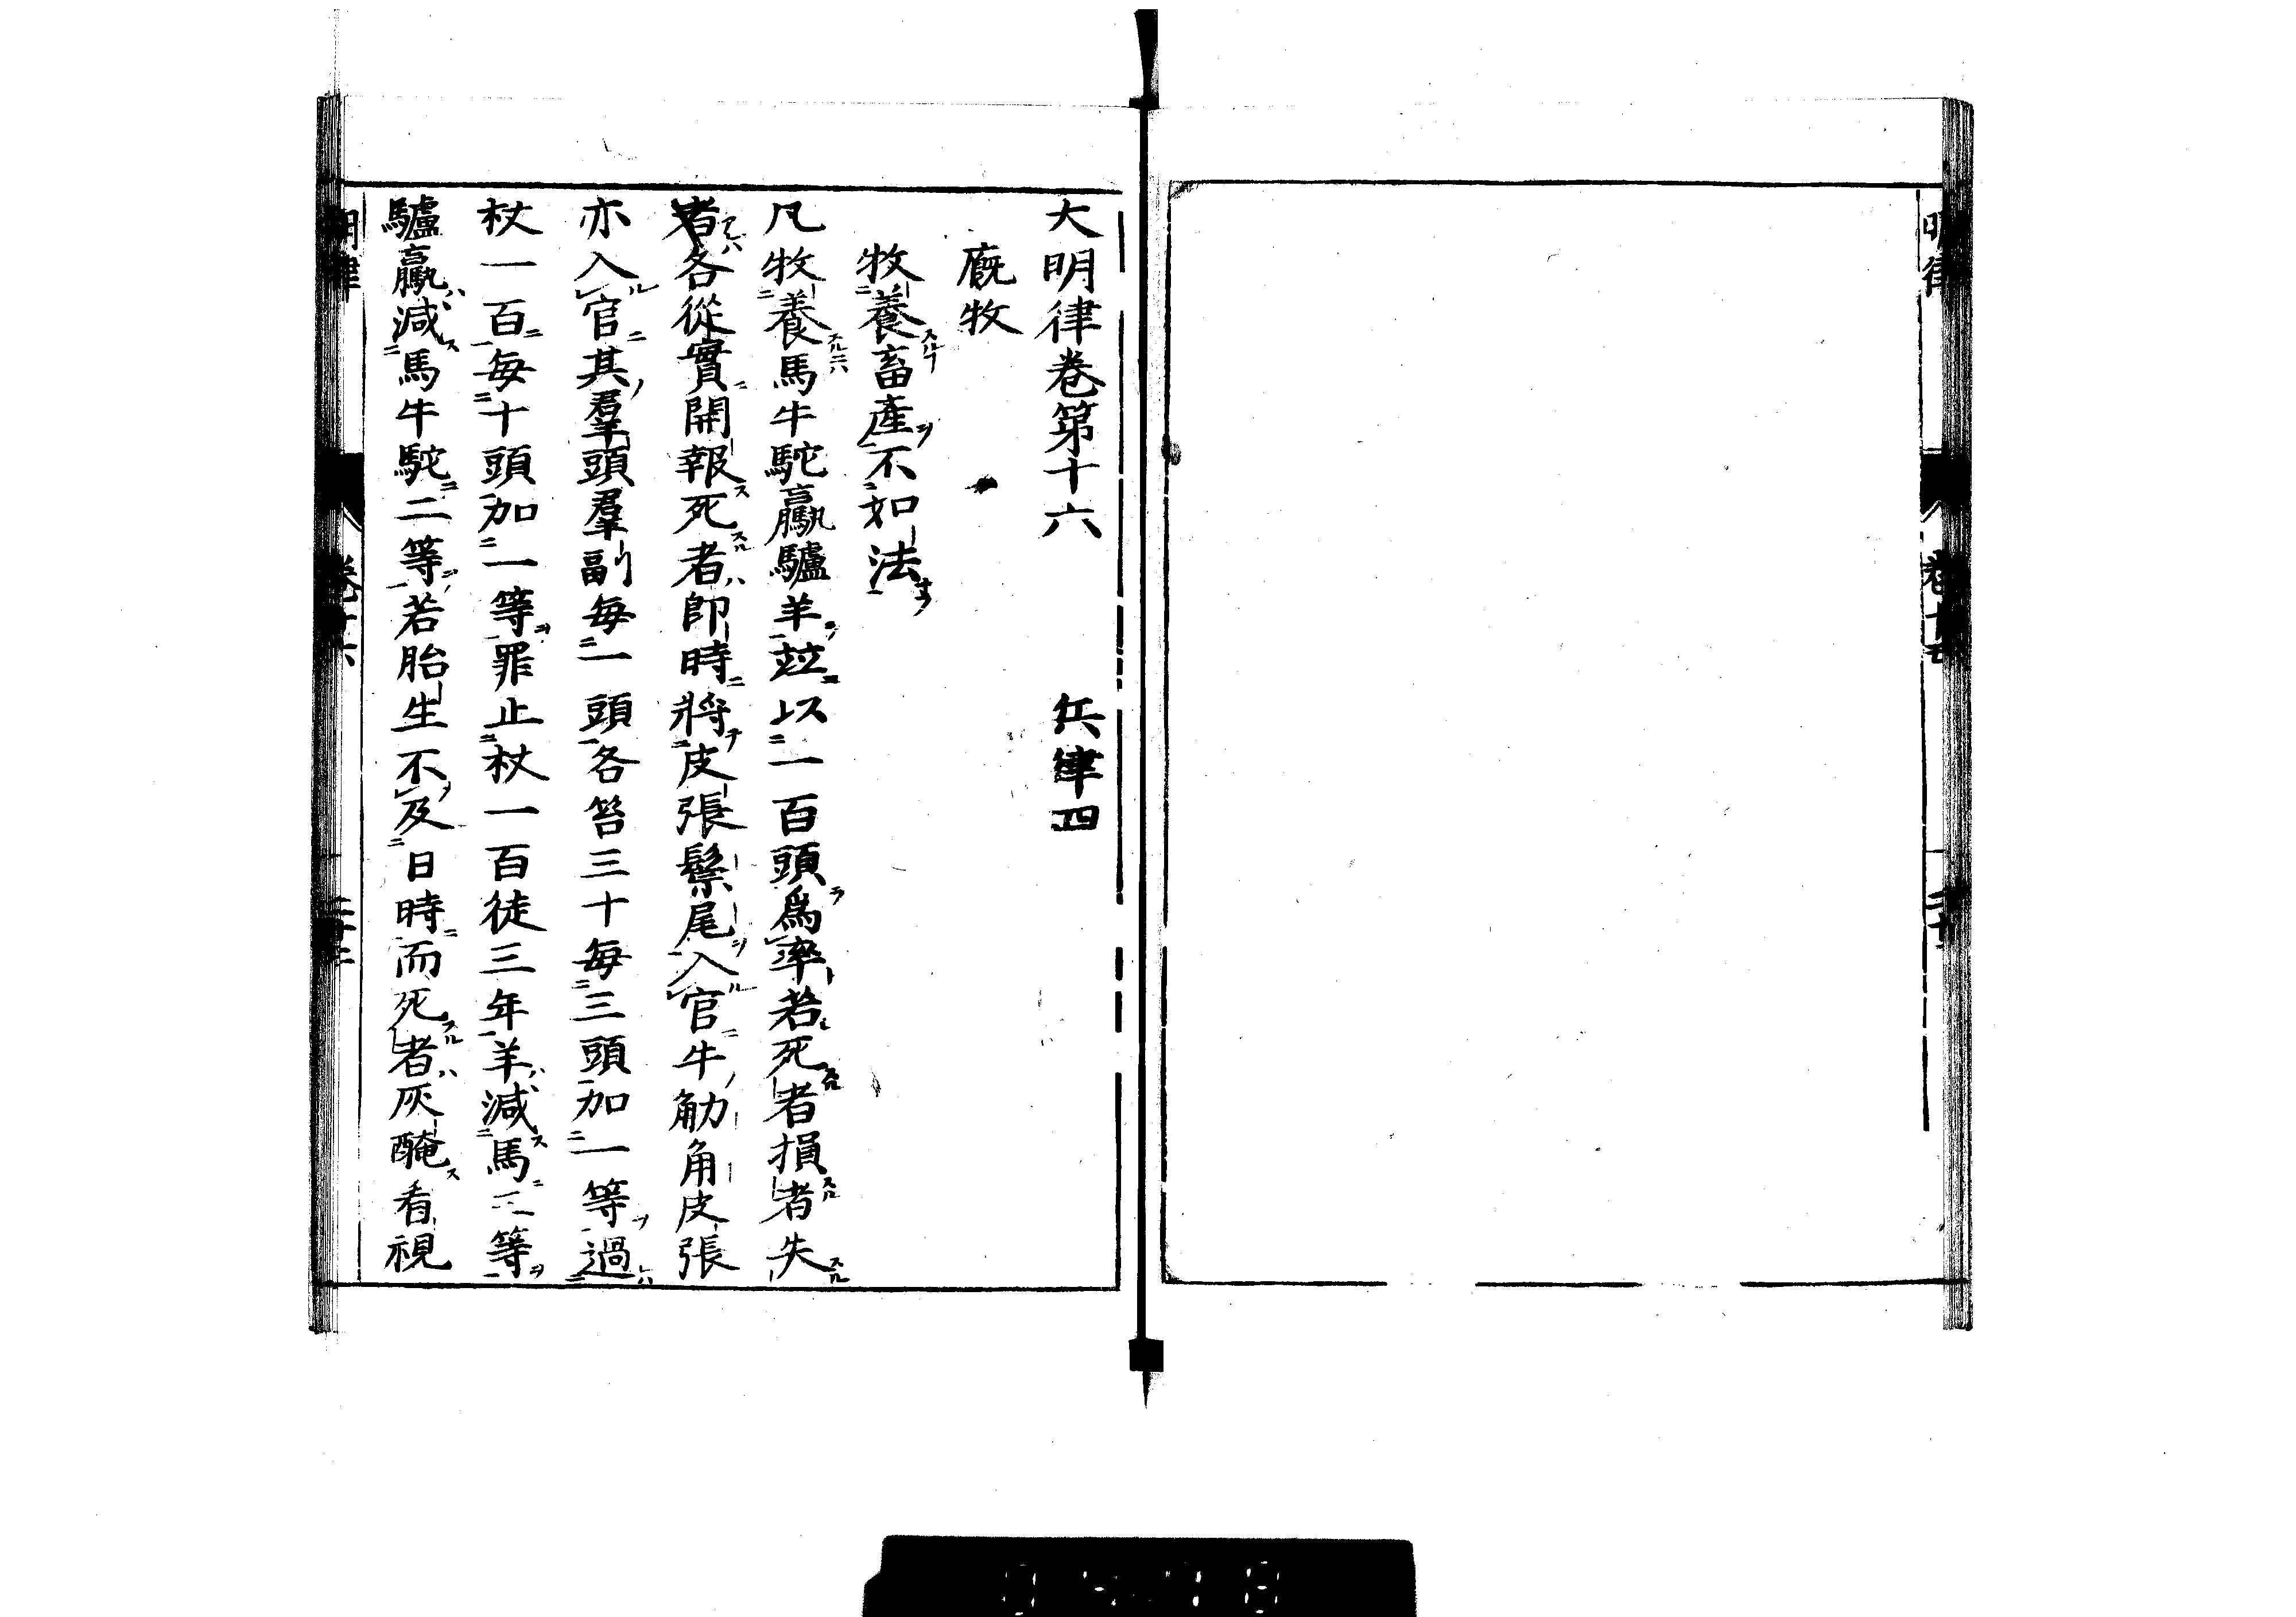 大明律卷第十六　兵律四
廐牧
牧養畜產不如法
凡牧養馬牛駝驘驢羊竝以一百頭爲率若死者損者失
者各從實開報死者卽時將皮張鬃尾入官牛觔角皮張
亦入官其羣頭羣副每一頭各笞三十每三頭加一等過
杖一百每十頭加一等罪止杖一百徒三年羊減馬三等
驢驘減馬牛駝二等若胎生不及日時而死者灰醃看視
明律
卷十六